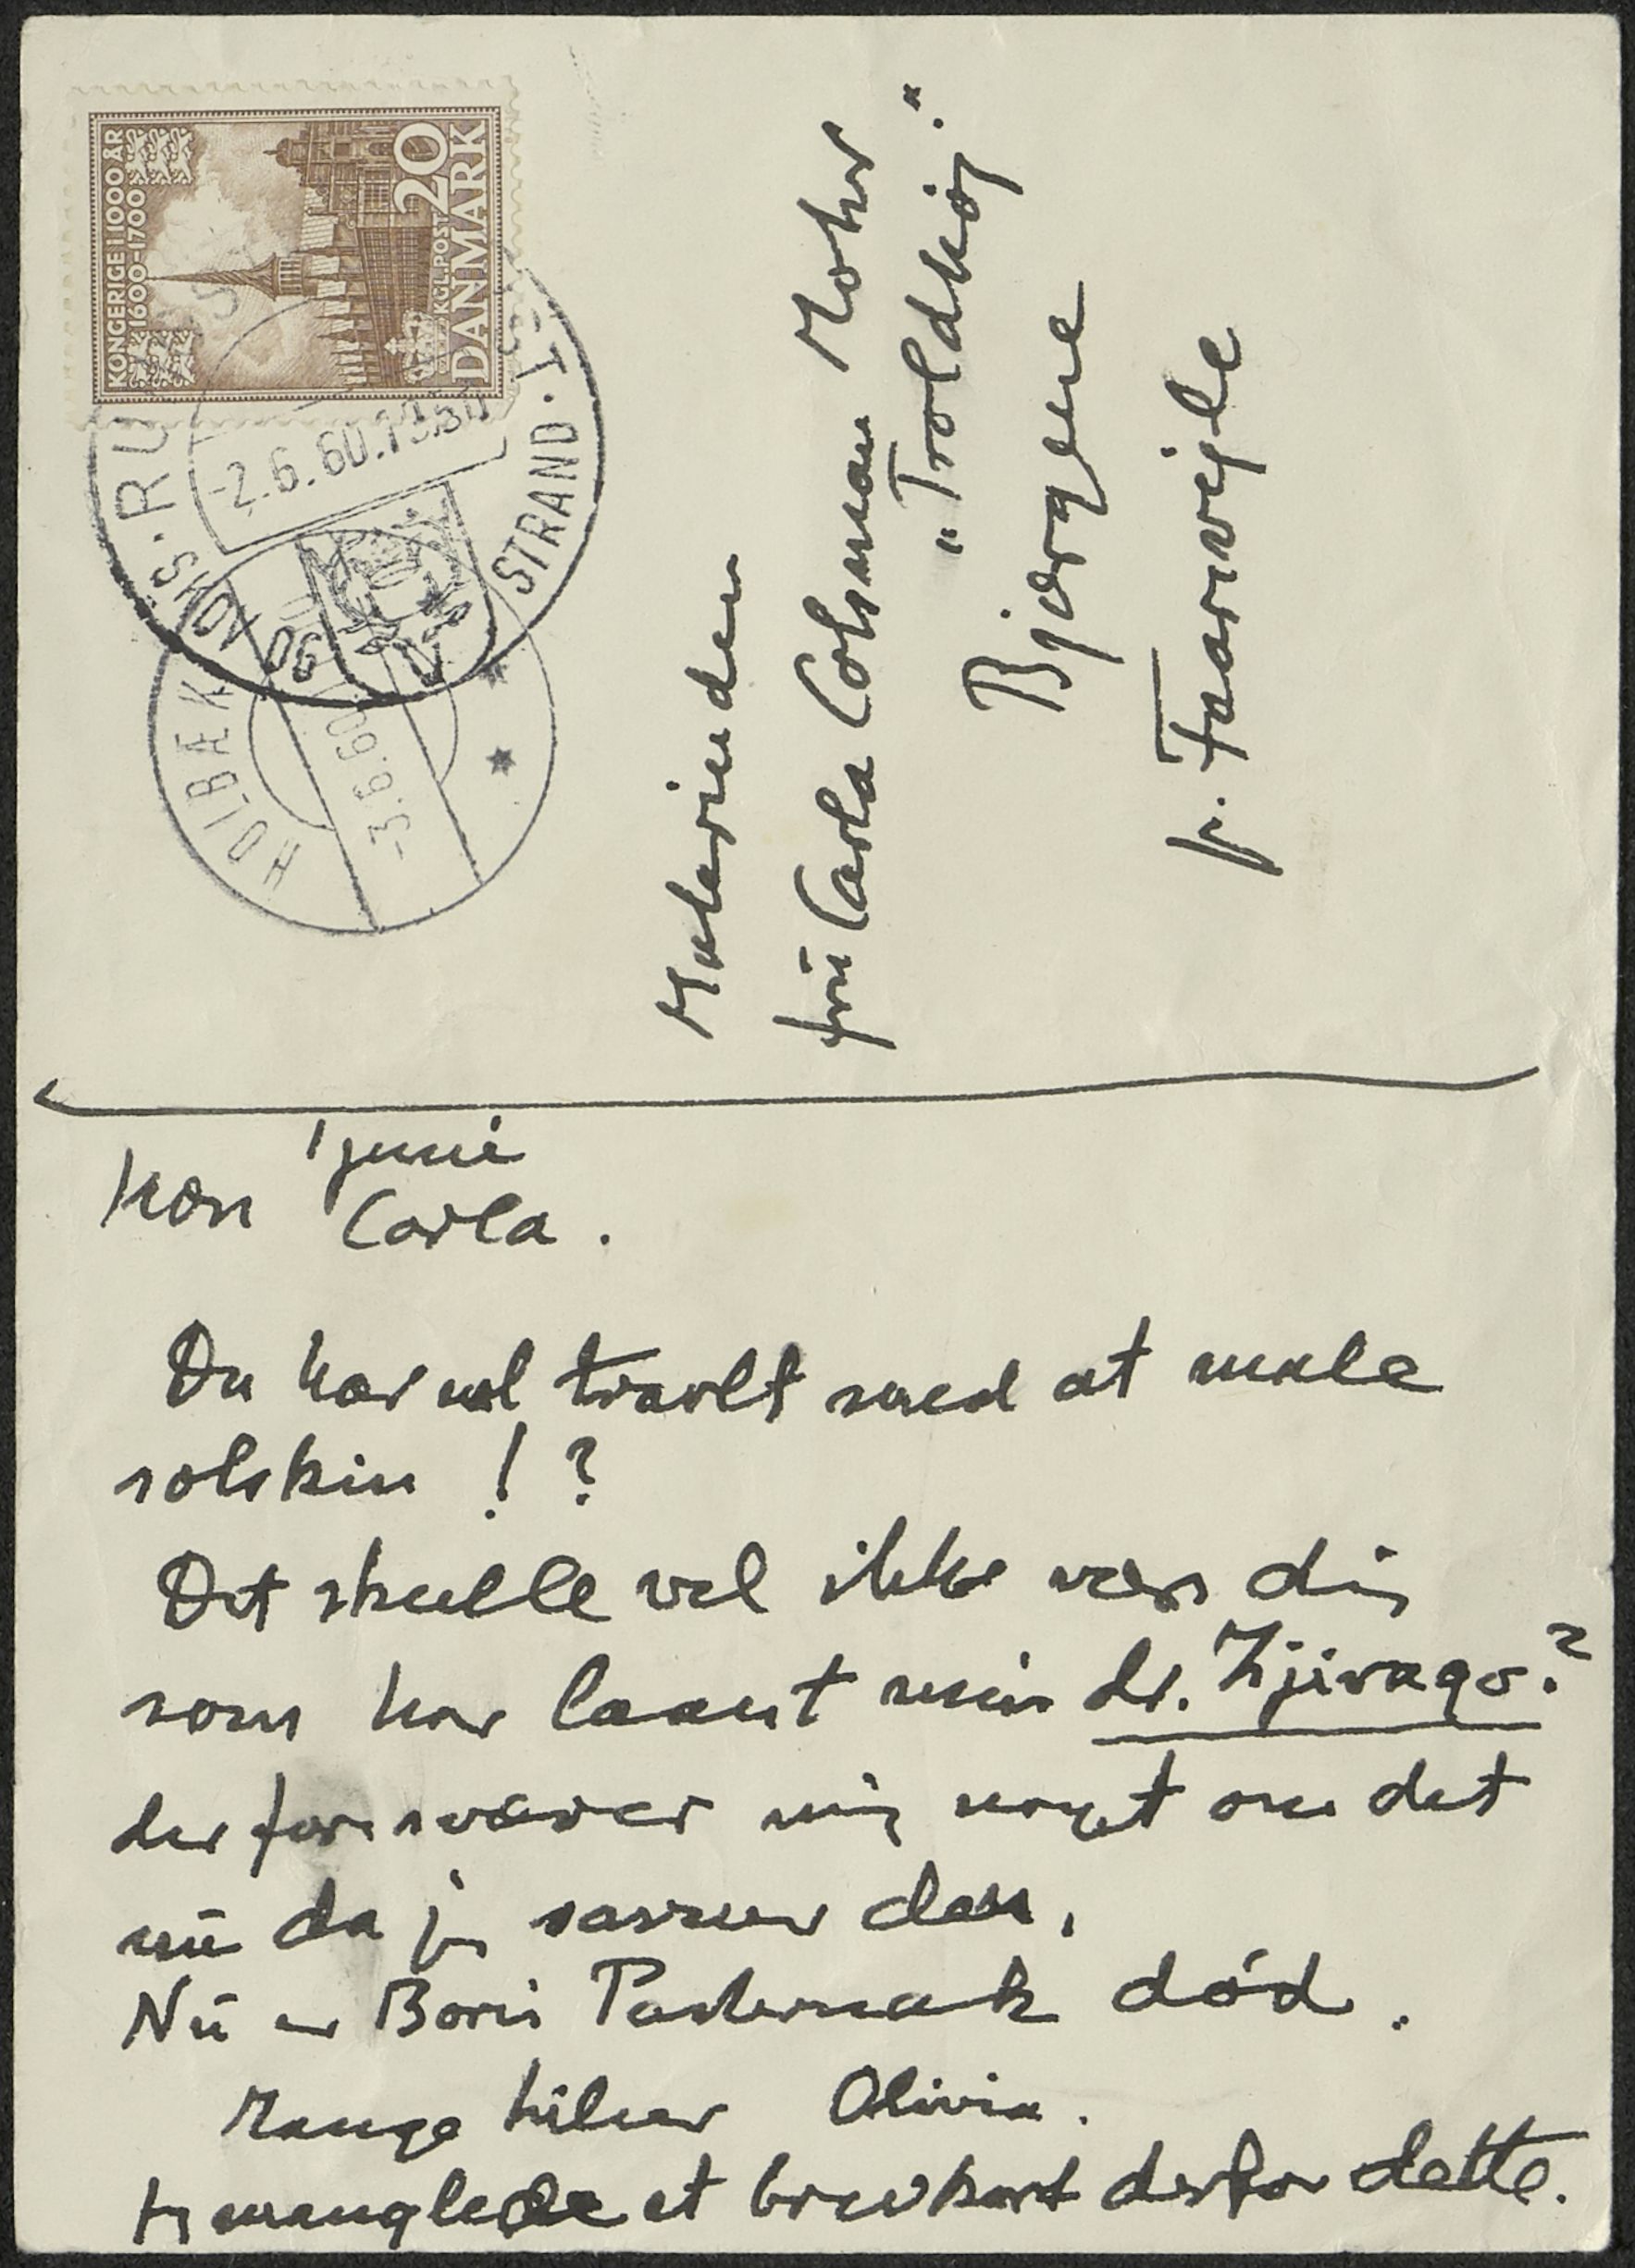 KONGERIGE I 1000 ÅR
1600-1700
KGL. POST 20
DANMARK
-2.6.60.
STRAND
HOLBÆK
-3.6.60
Malerinden
frū Carla Colsman Mohr
"Troldhöj."
Bjergene
p. Faarevejle
1 juni
Kære Carla.
Du har vel travlt med at male
solskin!?
Det skulle vel ikke være dig
som har laant min dr. Zjivago?
der forsvarer mig noget om det
nū da jeg savner den.
Nū er Boris Pasternak död.
Mange hilsner Olivia.
manglede et brevkort derfor dette.